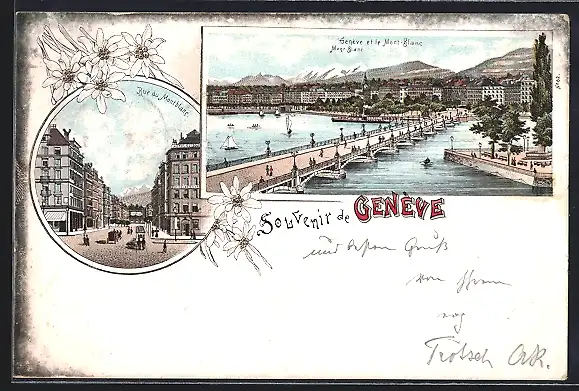 Genève et le Mont-Blanc
Mont Blanc
Rue du Montblanc
Souvenir de GENÈVE
und besten Gruß
von Ihrem
Trötsch